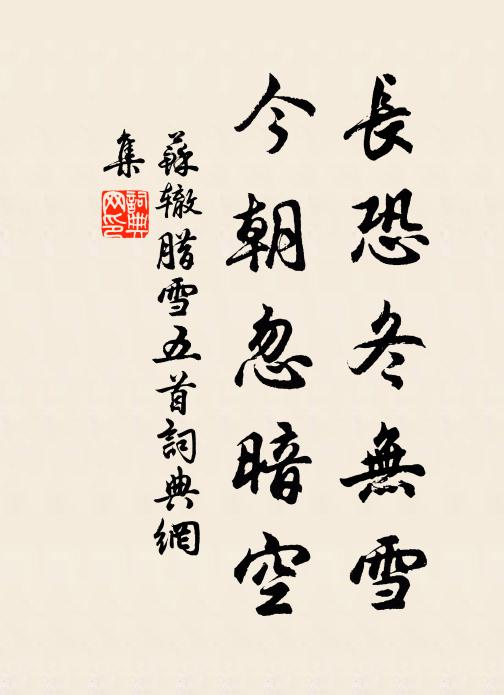 長恐冬無雪
今朝忽暗空
蘇辙腊雪五首詞典網
集
詞典網印